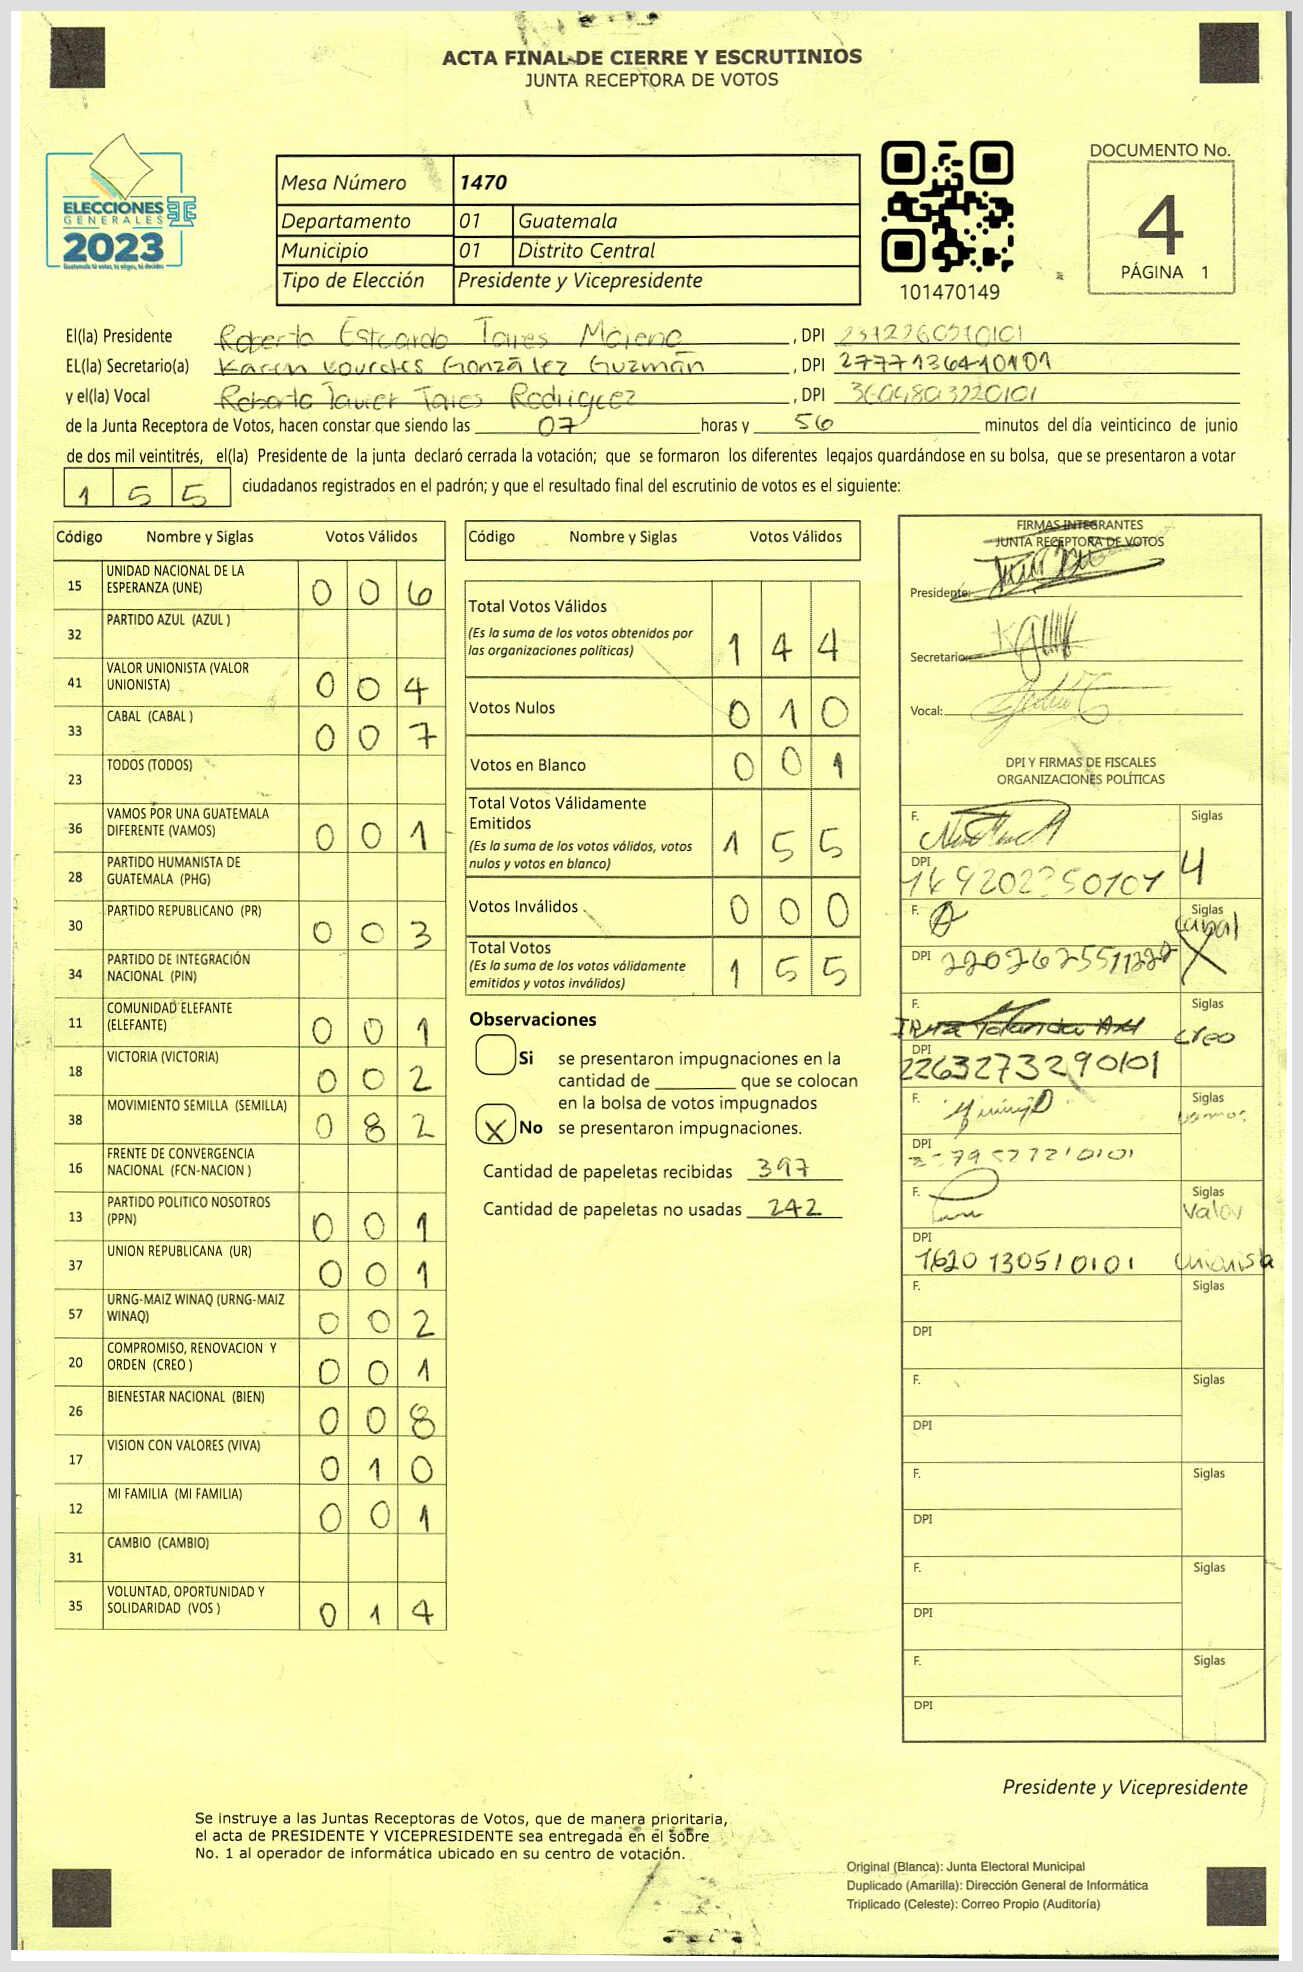 ACTA FINAL DE CIERRE Y ESCRUTINIOS
JUNTA RECEPTORA DE VOTOS
ELECCIONES
GENERALES
2023
Guatemala tú votas, tú eliges, tú decides
Mesa Número 1470
Departamento 01 Guatemala
Municipio 01 Distrito Central
Tipo de Elección Presidente y Vicepresidente
101470149
DOCUMENTO No.
4
PÁGINA 1
El(la) Presidente Roberto Estuardo Moreno , DPI
EL(la) Secretario(a) Karen Lourdes González Guzmán , DPI 2777136410101
y el(la) Vocal Roberto Javier Rodriguez , DPI
de la Junta Receptora de Votos, hacen constar que siendo las 07 horas y 56 minutos del día veinticinco de junio
de dos mil veintitrés, el(la) Presidente de la junta declaró cerrada la votación; que se formaron los diferentes legajos guardándose en su bolsa, que se presentaron a votar
1 5 5 ciudadanos registrados en el padrón; y que el resultado final del escrutinio de votos es el siguiente:
Código Nombre y Siglas Votos Válidos
15 UNIDAD NACIONAL DE LA
ESPERANZA (UNE) 0 0 6
32 PARTIDO AZUL (AZUL )
41 VALOR UNIONISTA (VALOR
UNIONISTA) 0 0 4
33 CABAL (CABAL ) 0 0 7
23 TODOS (TODOS)
36 VAMOS POR UNA GUATEMALA
DIFERENTE (VAMOS) 0 0 1
28 PARTIDO HUMANISTA DE
GUATEMALA (PHG)
30 PARTIDO REPUBLICANO (PR) 0 0 3
34 PARTIDO DE INTEGRACIÓN
NACIONAL (PIN)
11 COMUNIDAD ELEFANTE
(ELEFANTE) 0 0 1
18 VICTORIA (VICTORIA) 0 0 2
38 MOVIMIENTO SEMILLA (SEMILLA) 0 8 2
16 FRENTE DE CONVERGENCIA
NACIONAL (FCN-NACION )
13 PARTIDO POLITICO NOSOTROS
(PPN) 0 0 1
37 UNION REPUBLICANA (UR) 0 0 1
57 URNG-MAIZ WINAQ (URNG-MAIZ
WINAQ) 0 0 2
20 COMPROMISO, RENOVACION Y
ORDEN (CREO ) 0 0 1
26 BIENESTAR NACIONAL (BIEN) 0 0 8
17 VISION CON VALORES (VIVA) 0 1 0
12 MI FAMILIA (MI FAMILIA) 0 0 1
31 CAMBIO (CAMBIO)
35 VOLUNTAD, OPORTUNIDAD Y
SOLIDARIDAD (VOS ) 0 1 4
Código Nombre y Siglas Votos Válidos
Total Votos Válidos
(Es la suma de los votos obtenidos por
las organizaciones políticas) 1 4 4
Votos Nulos 0 1 0
Votos en Blanco 0 0 1
Total Votos Válidamente
Emitidos
(Es la suma de los votos válidos, votos
nulos y votos en blanco) 1 5 5
Votos Inválidos 0 0 0
Total Votos
(Es la suma de los votos válidamente
emitidos y votos inválidos) 1 5 5
Observaciones
Si se presentaron impugnaciones en la
cantidad de ________ que se colocan
en la bolsa de votos impugnados
X No se presentaron impugnaciones.
Cantidad de papeletas recibidas 397
Cantidad de papeletas no usadas 242
FIRMAS INTEGRANTES
JUNTA RECEPTORA DE VOTOS
Presidente:
Secretario:
Vocal:
DPI Y FIRMAS DE FISCALES
ORGANIZACIONES POLÍTICAS
F. Siglas
DPI
F. Siglas
Cabal
DPI
F. Siglas
Creo
DPI
2263273290101
F. Siglas
Vamos
DPI
F. Siglas
Valor
DPI
1620130510101 Unionista
F. Siglas
DPI
F. Siglas
DPI
F. Siglas
DPI
F. Siglas
DPI
F. Siglas
DPI
Presidente y Vicepresidente
Se instruye a las Juntas Receptoras de Votos, que de manera prioritaria,
el acta de PRESIDENTE Y VICEPRESIDENTE sea entregada en el sobre
No. 1 al operador de informática ubicado en su centro de votación.
Original (Blanca): Junta Electoral Municipal
Duplicado (Amarilla): Dirección General de Informática
Triplicado (Celeste): Correo Propio (Auditoría)